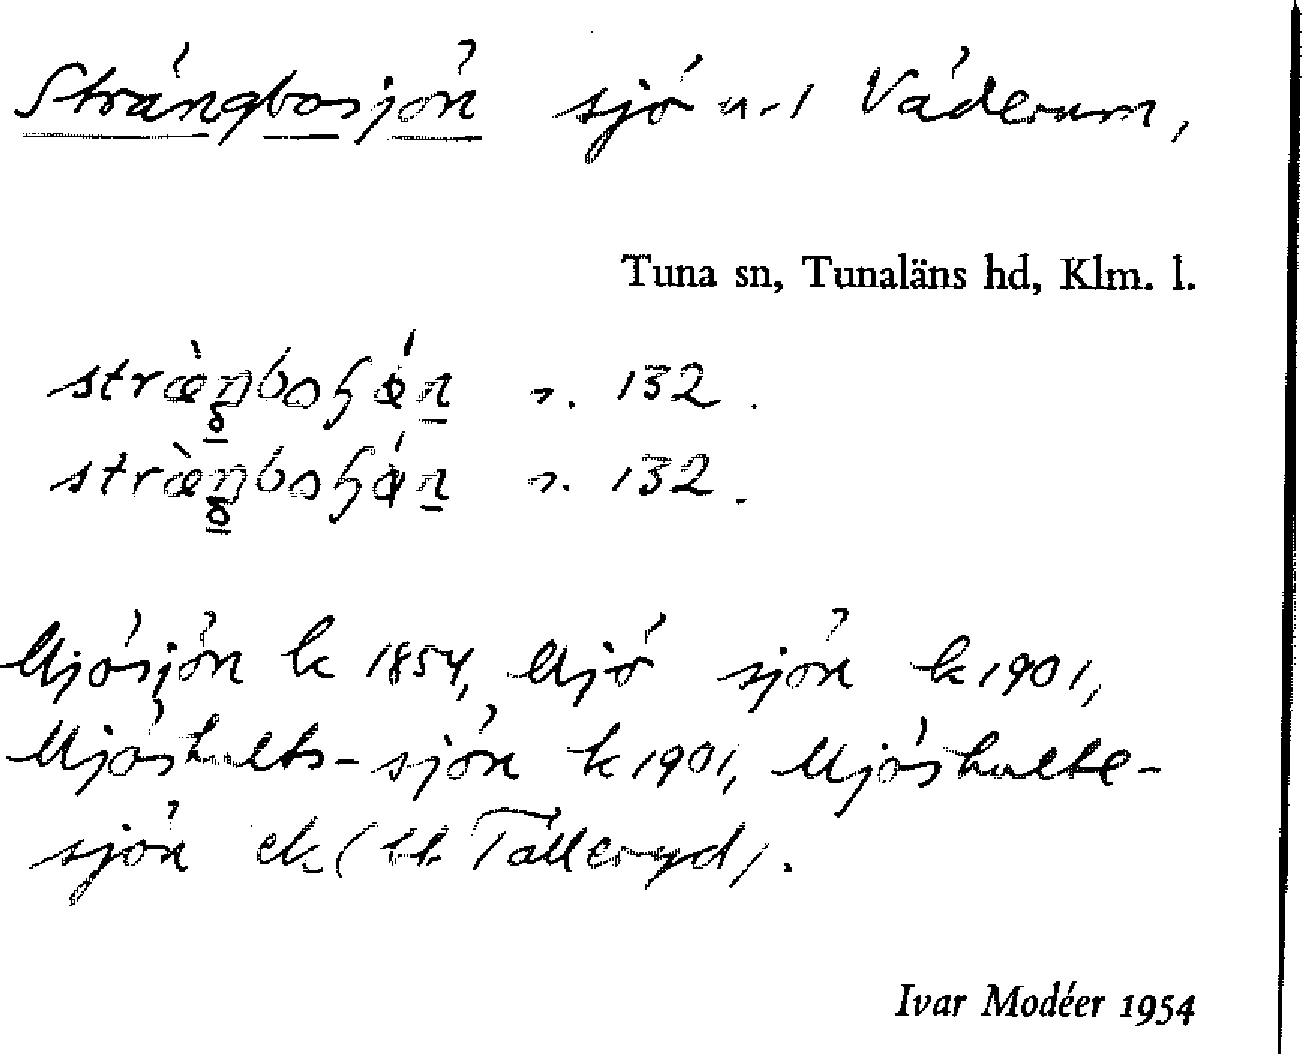 Strängbosjön sjö n-l Väderum,
Tuna sn, Tunaläns hd, Klm. l.
r. 132.
r. 132.
Mjösjön k 1854, Mjö sjön k 1901,
Mjöshults-sjön k 1901, Mjöshulte-
sjön ek (bl. Tälleryd).
Ivar Modéer 1954